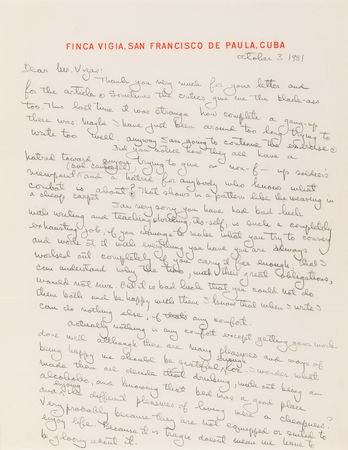 FINCA VIGIA, SAN FRANCISCO DE PAULA, CUBA
October 3 1951
Dear Mr. Vigas:
Thank you very much for your letter and
for the article. Sometimes the critics give me the black-ass
too. This last time it was strange how complete a gang-up
there was. Maybe I have just been around too long trying to
write too well. Anyway I am going to continue the exercise.
Did you notice how they all have a
hatred toward anyone trying to give a non-f- up soldier's
viewpoint and a hatred for anybody who knows what
combat is about? That shows in a pattern like the weaving in
a cheap carpet.
I am very sorry you have had bad luck
with writing and teaching. Writing itself, is such a completely
exhausting job, if you manage to make what you try to convey
and work at it with everything you have you are always
worked out completely if you carry it far enough, that I
can understand why the two, with their great obligations,
would not mix. But it is bad luck that you could not do
them both and be happy with them. I know that when I write I
can do nothing else, if that's any comfort.
Actually nothing is any comfort except getting your work
done well although there are many pleasures and ways of
being happy we should be grateful for. I wonder what
made them all decide that drinking, without being an
alcoholic, and knowing that bed was a good place
and enjoying the different pleasures of living were a cheapness?
Very probably because they are not equipped or suited to
enjoy life. Because it is tragic doesn't mean we have to
be gloomy about it.